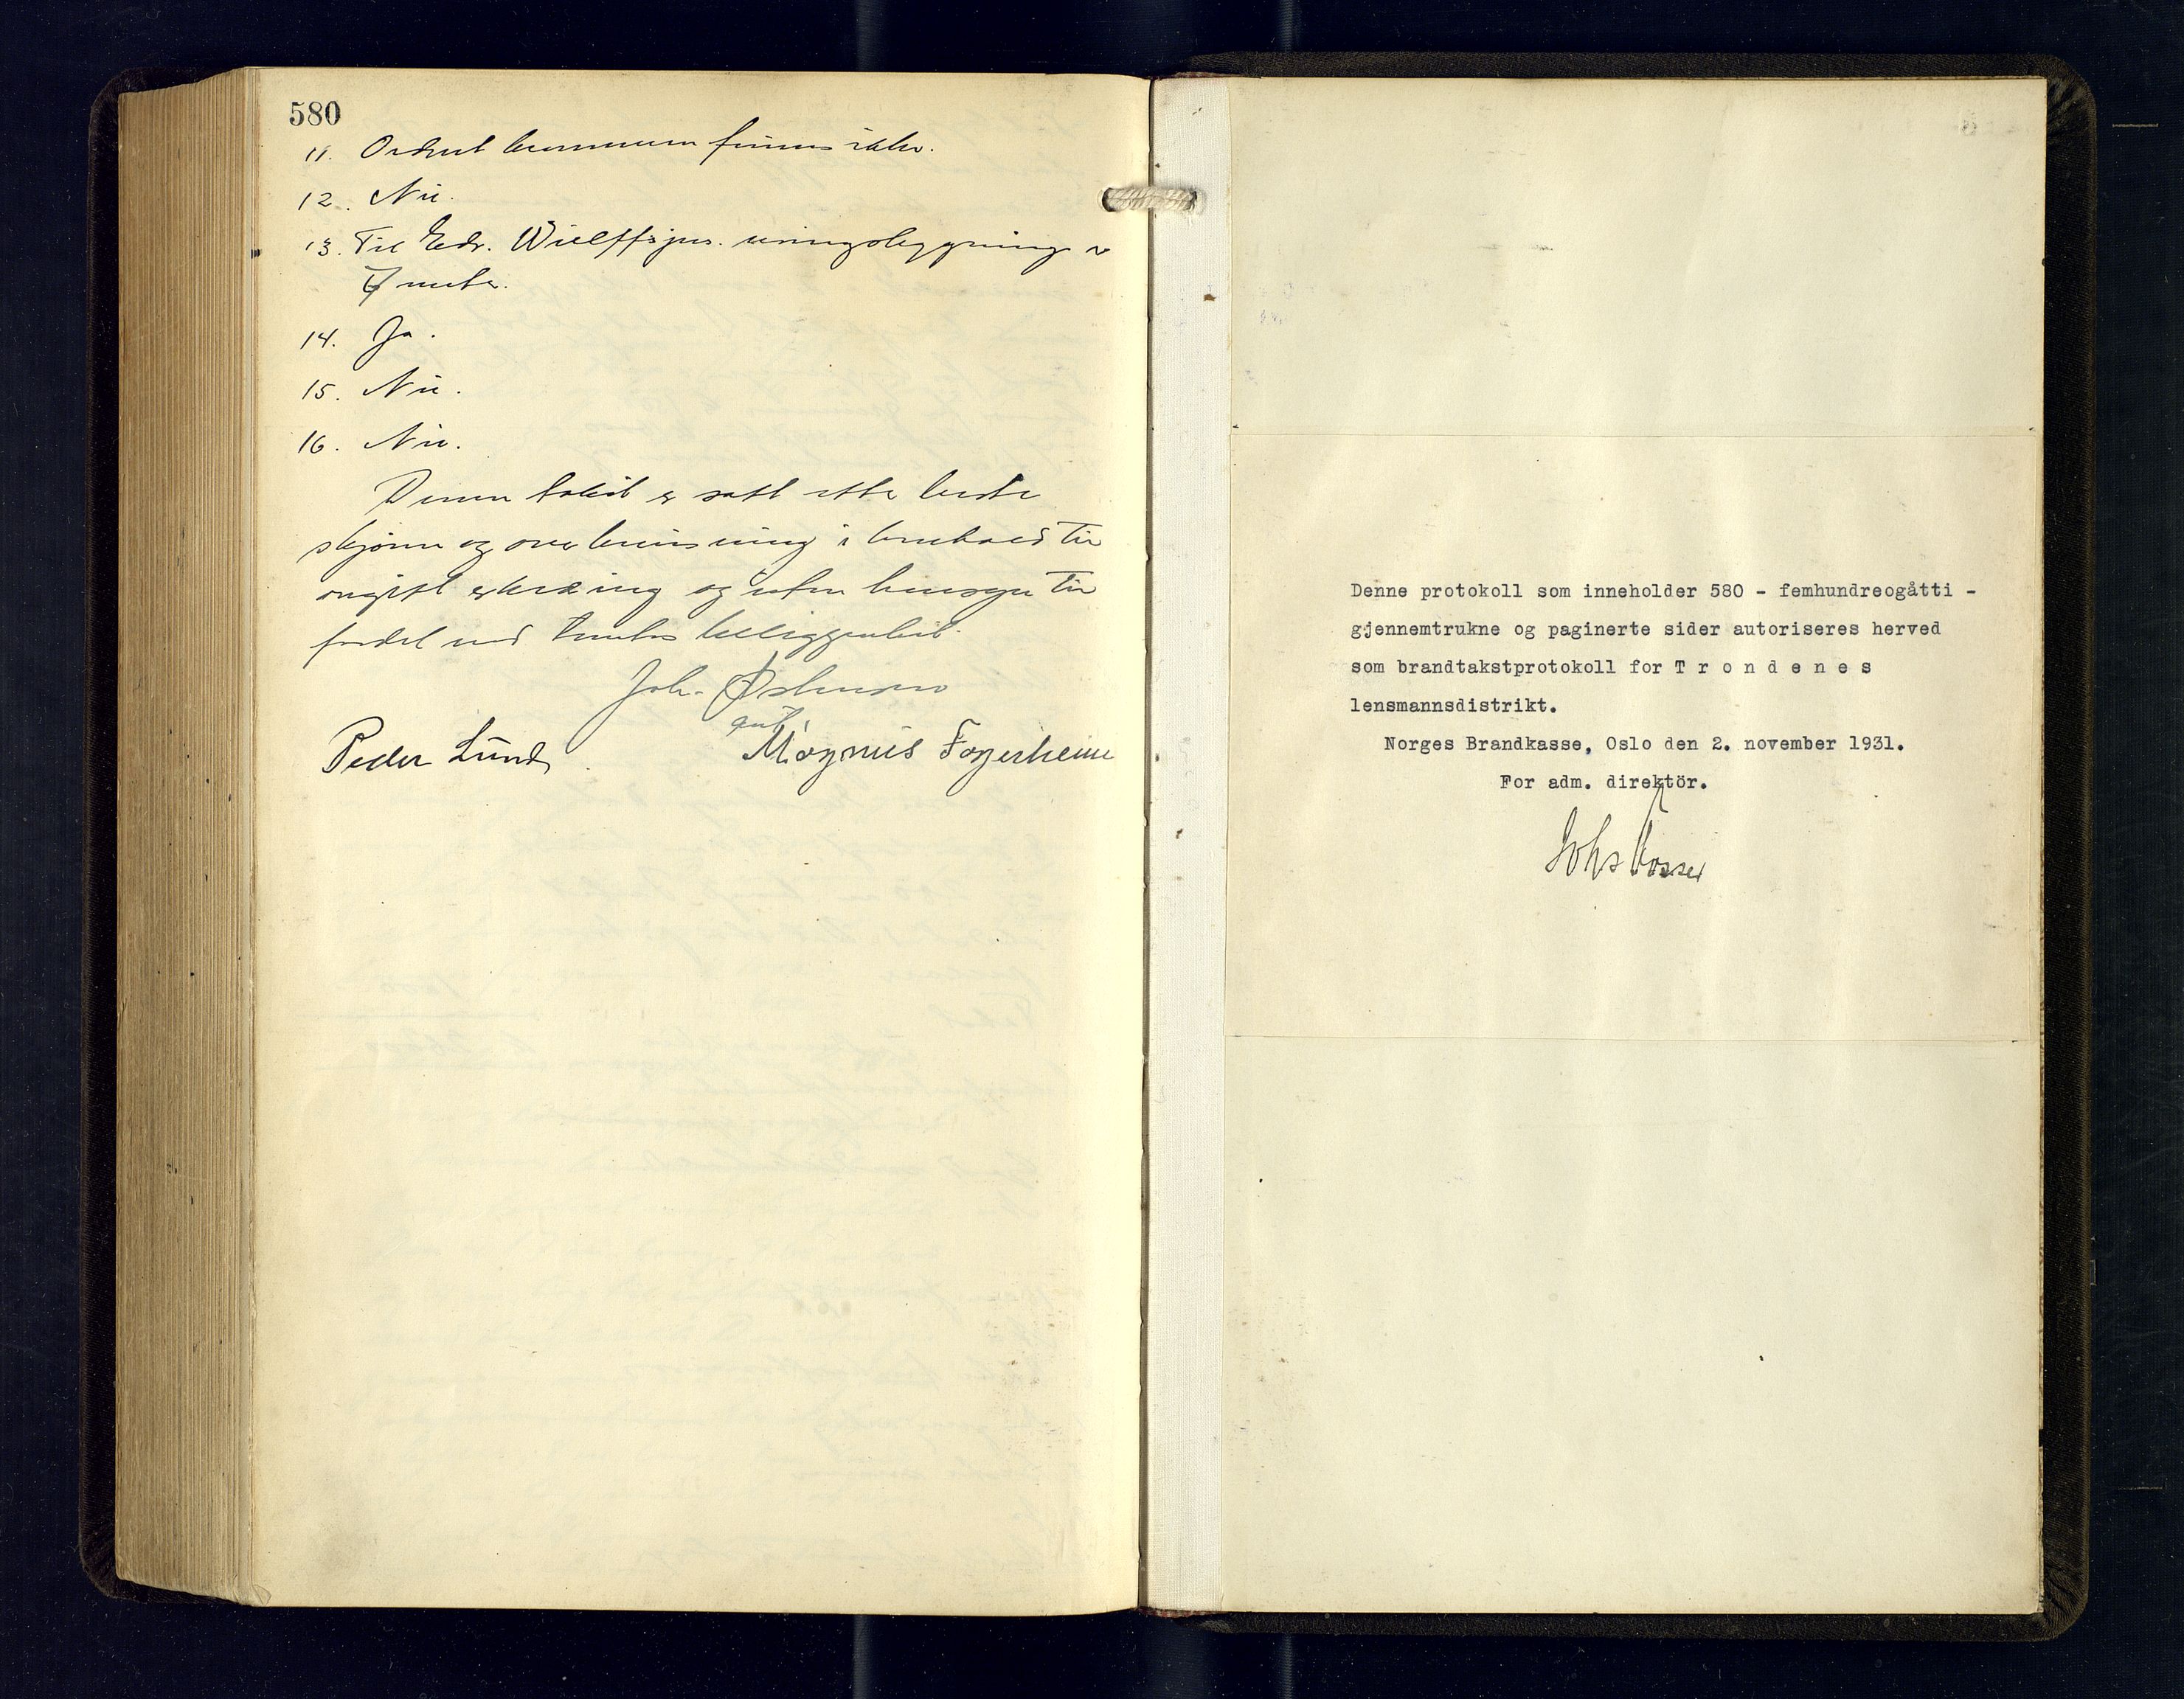 580
11. Ordnet brannvern finnes ikke.
12. Nei.
13. Til Edv. våningsbygning er
7 meter.
14. Ja.
15. Nei.
16. Nei.
Denne takst er satt efter beste
skjønn og overbevisning i henhold til
avgitt erklæring og uten hensyn til
fordel ved tomtens beliggenhet.
Joh.
Peder Lund. Magnus Fagerheim
Denne protokoll som inneholder 580 - femhundreogåtti -
gjennemtrukne og paginerte sider autoriseres herved
som brandtakstprotokoll for T r o n d e n e s
lensmannsdistrikt.
Norges Brandkasse, Oslo den 2. november 1931.
For adm. direktör.
Johs